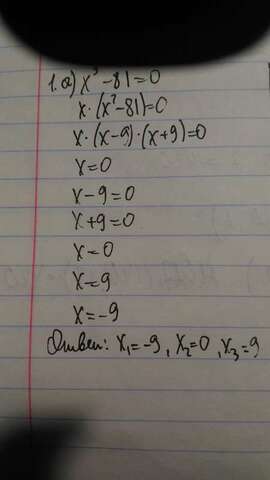 1. а) x³ - 81 = 0
x · (x² - 81) = 0
x · (x - 9) · (x + 9) = 0
x = 0
x - 9 = 0
x + 9 = 0
x = 0
x = 9
x = -9
Ответ: x₁ = -9, x₂ = 0, x₃ = 9